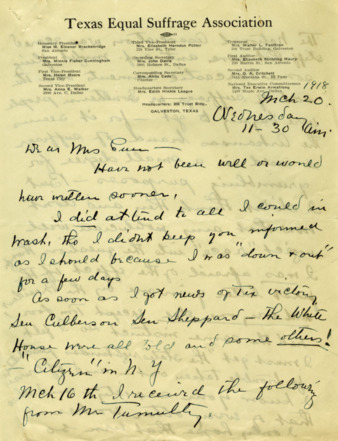 Texas Equal Suffrage Association
Honorary President
Miss M. Eleanor Brackenridge
San Antonio
President
Mrs. Minnie Fisher Cunningham
Galveston
First Vice-President
Mrs. Helen Moore
Texas City
Second Vice-President
Mrs. Anna B. Walker
Third Vice-President
Mrs. Elizabeth Herndon Potter
Recording Secretary
Mrs. John Davis
Corresponding Secretary
Headquarters Secretary
Treasurer
Auditor
Headquarters:
GALVESTON, TEXAS
1918
Mch 20.
Wednesday
11-30 A.m.
Dear Mrs
Have not been well or would
have written sooner.
I did attend to all I could in
Wash, tho I didn't keep you informed
as I should because I was "down & out"
for a few days
As soon as I got news of Tex victory
Sen Culberson Sen Sheppard - The White
House were all told and some others!
- "Citizen" in N. Y
Mch 16th I received the following
from Mr Tumulty